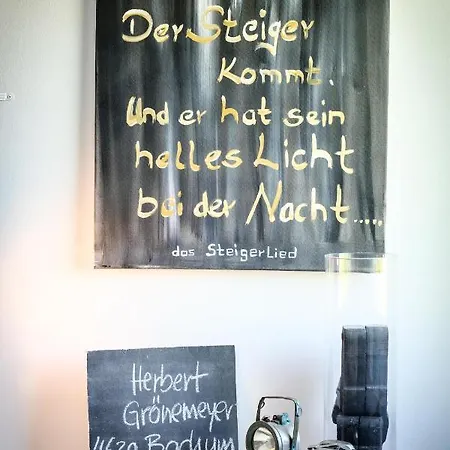 Der Steiger
Kommt.
Und er hat sein
helles Licht
bei der Nacht.....
das SteigerLied
Herbert
Grönemeyer
4630 Bochum